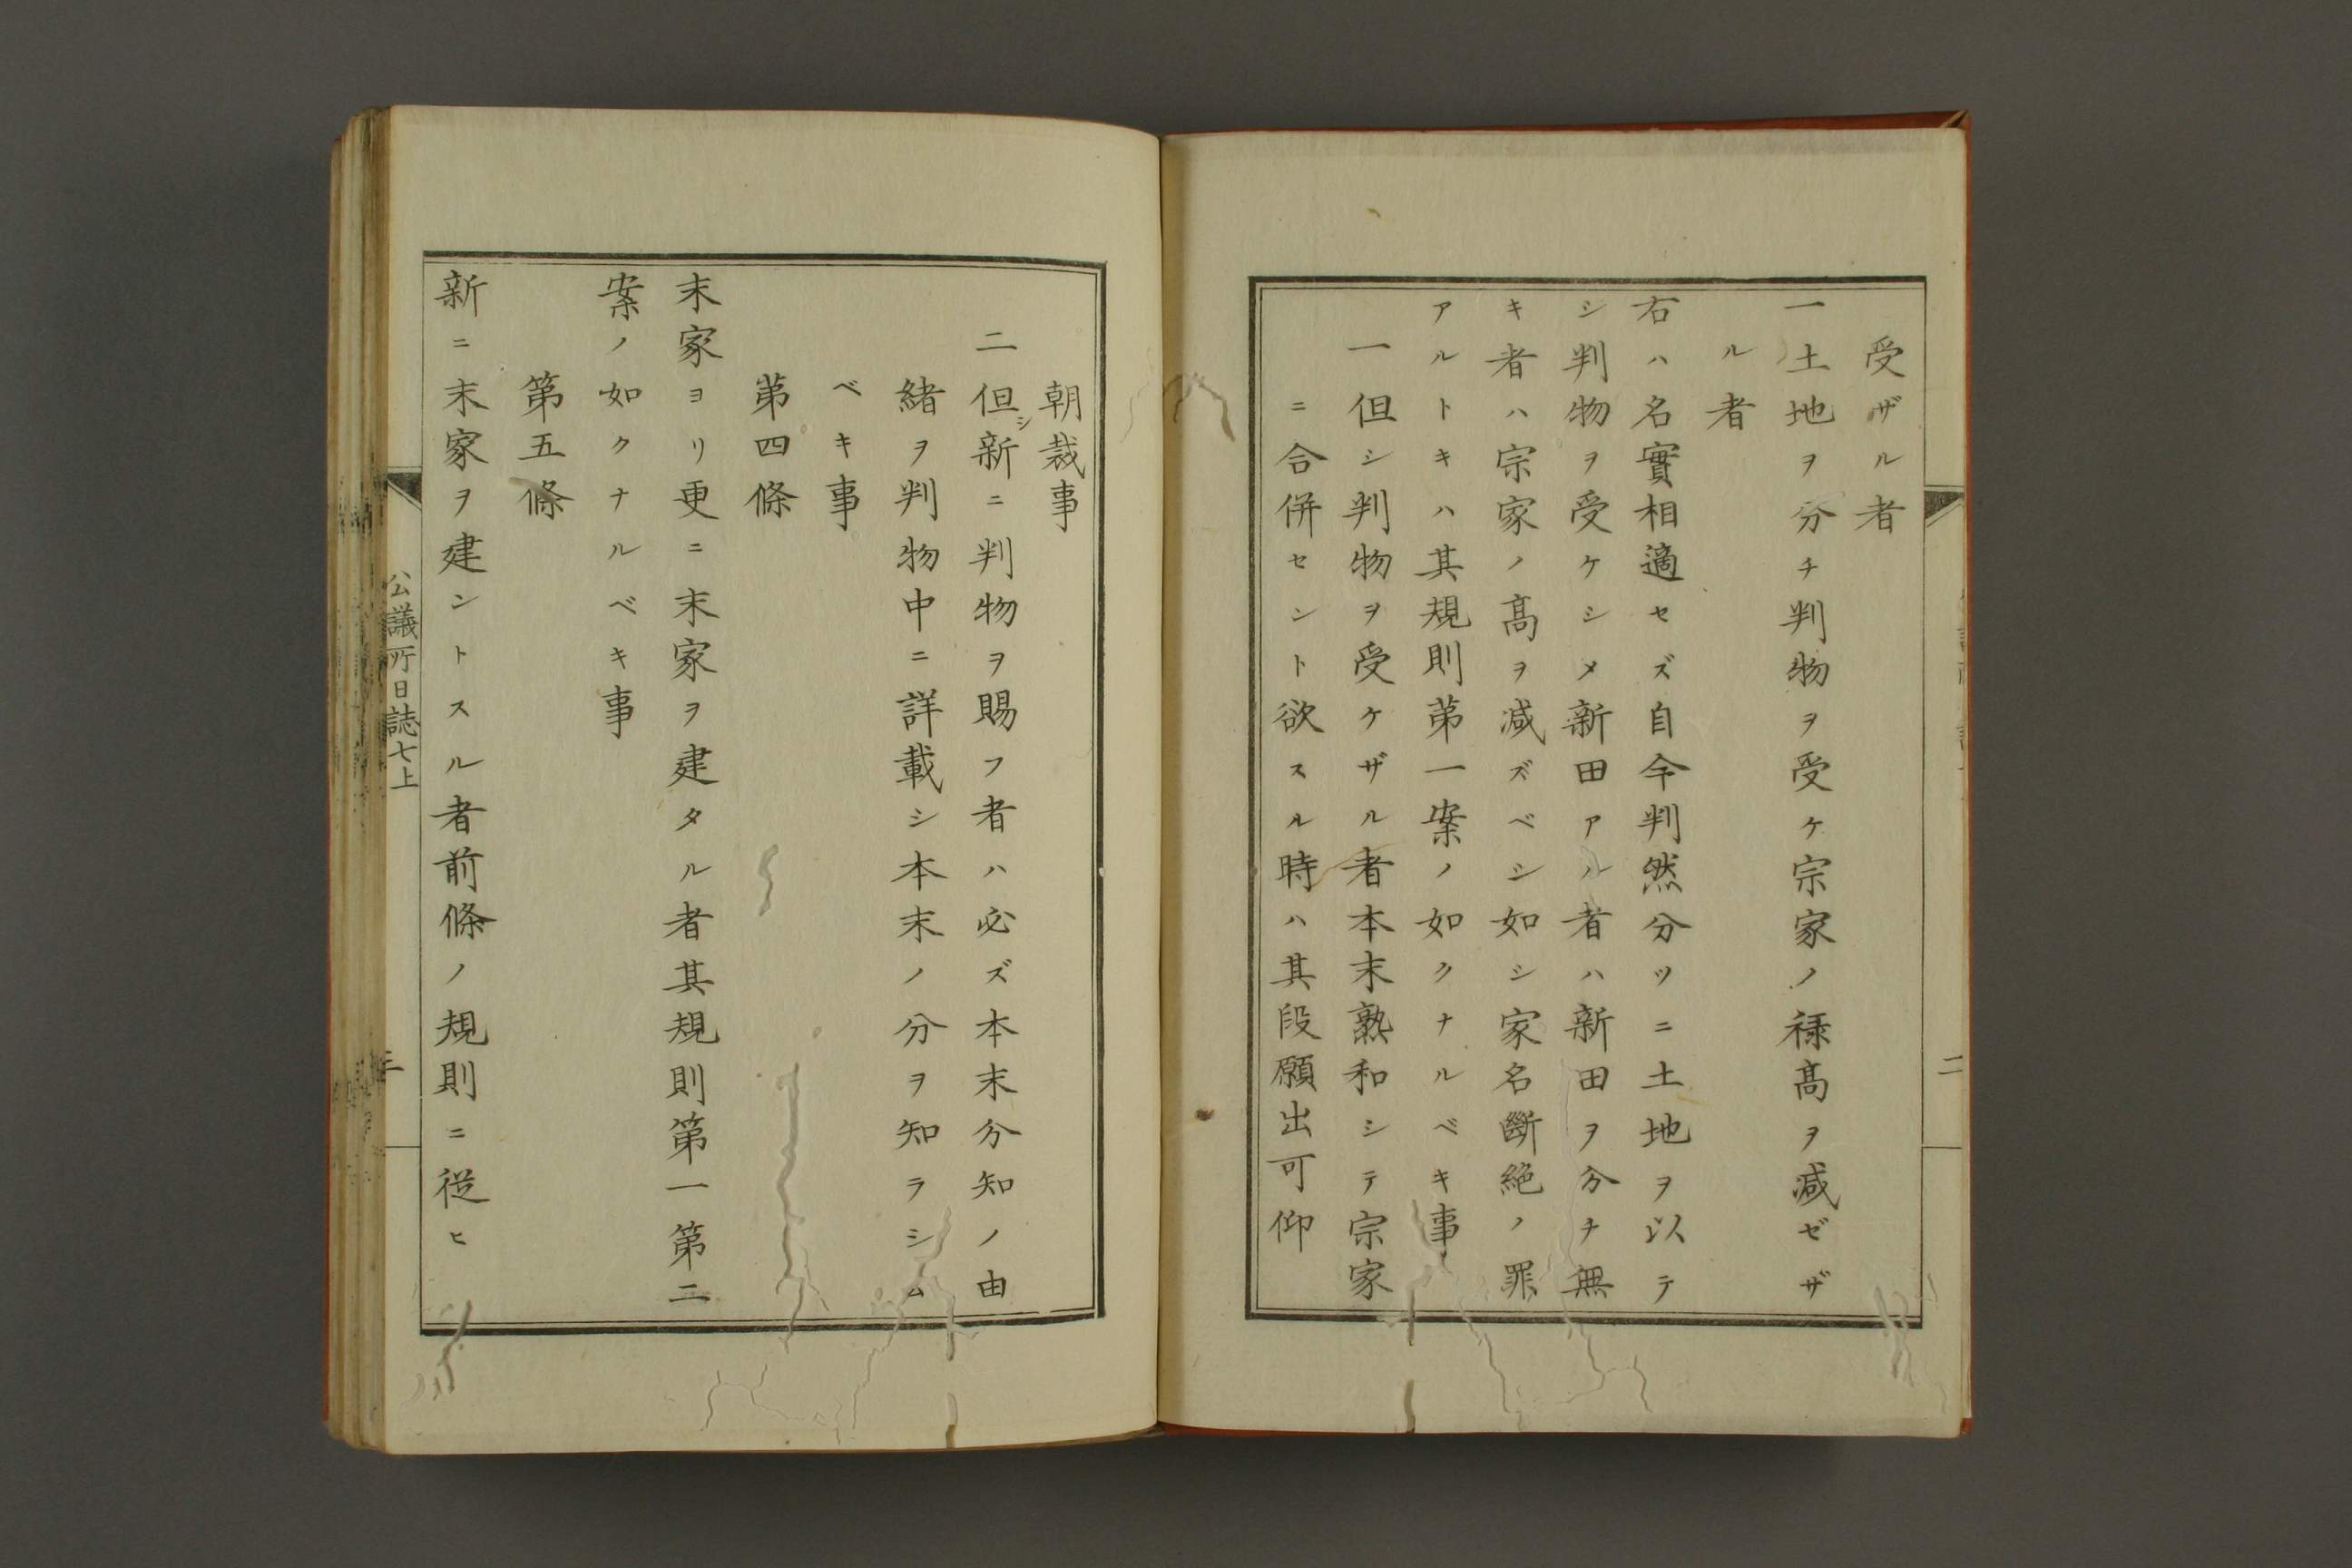 受ザル者
一土地ヲ分チ判物ヲ受ケ宗家ノ禄髙ヲ減ゼザ
ル者
右ハ名實相適セズ自今判然分ツニ土地ヲ以テ
シ判物ヲ受ケシメ新田アル者ハ新田ヲ分チ無
キ者ハ宗家ノ髙ヲ減ズベシ如シ家名斷絶ノ罪
アルトキハ其規則第一案ノ如クナルベキ事
一但シ判物ヲ受ケザル者本末熟和シテ宗家
ニ合併セント欲スル時ハ其段願出可仰
二
朝裁事
二但シ新ニ判物ヲ賜フ者ハ必ズ本末分知ノ由
緒ヲ判物中ニ詳載シ本末ノ分ヲ知ラシム
ベキ事
第四條
末家ヨリ更ニ末家ヲ建タル者其規則第一第二
案ノ如クナルベキ事
第五條
新ニ末家ヲ建ントスル者前條ノ規則ニ從ヒ
公議所日誌七上
三